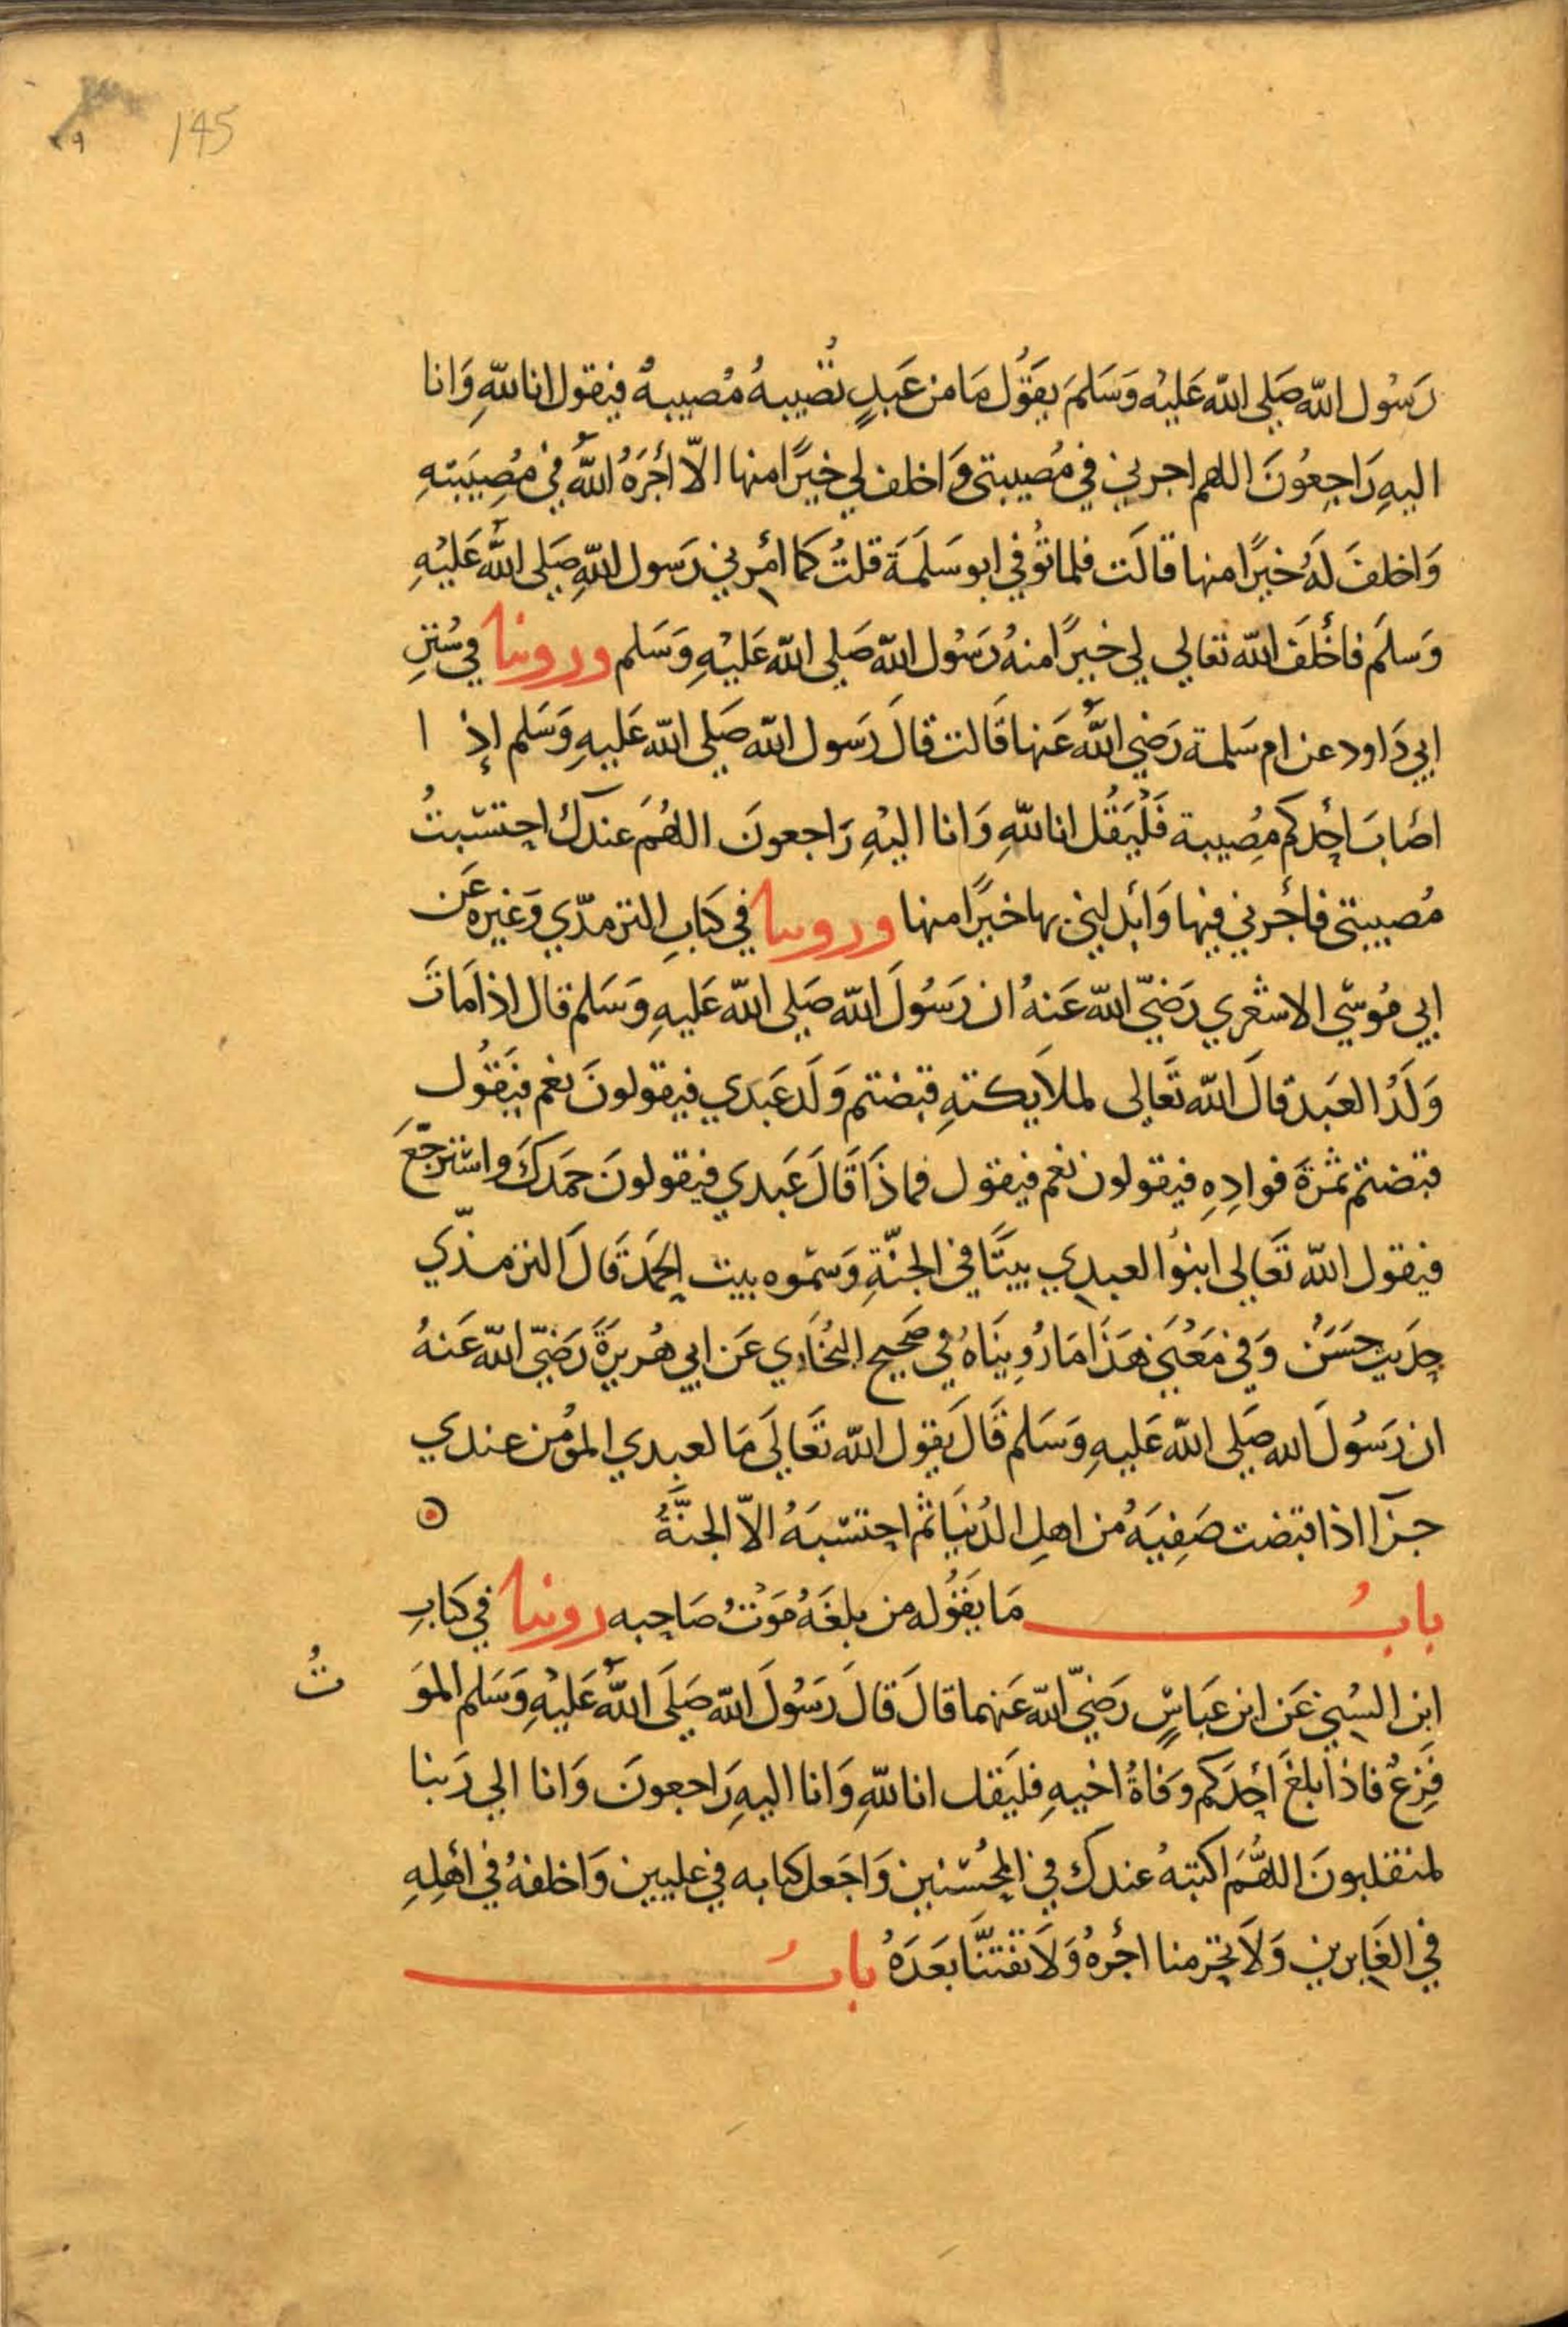 145
رَسُول اللّه صَلى اللّه عَليْه وَسَلمَ يقَوُل مَا من عَبدٍ تُصيبهُ مُصيبهُ فيقول انا للّهِ وَانا
اليهِ رَاجِعُونَ اللهم اجرني في مُصيبتي وَاخلف لي خيرًا منها الاّ أجَرَهُ اللّهُ في مُصِيَبتهِ
وَاخلفَ لَهُ خيرًا منها قالَت فلما توُفي ابو سَلَمَة قلتُ كما امرني رَسول اللّهِ صَلى اللّه عَليْهِ
وَسلَم فأخْلَفَ اللّه تعَالي لي خيرًا منهُ رَسُول اللّه صَلى اللّه عَليْهِ وَسَلم وروينا في سُننِ
ابي دَاود عن ام سَلمة رَضي اللّهُ عَنها قَالت قالَ رَسول اللّه صَلى اللّه عَليهِ وَسَلم إذ ا
اصَابَ احَدكم مصِيبة فَلْيَقُل انا للّهِ وَانا اليْهِ رَاجعونَ اللهُمَ عندك احتسَبتُ
مُصيبتي فأجُرني فيها وَأبدلني بها خيرًا منها وروينا في كتابِ الترمذّي وَغيره عَن
ابي مُوسَي الاشعَري رَضيّ اللّه عَنهُ ان رَسُولَ اللّه صَلى اللّه عَليهِ وَسَلم قال اذا مَاتَ
وَلَدُ العَبد قالَ اللّه تَعَالى لملاَيكتهِ قبَضتم وَلَد عَبدَي فيقولونَ نعَم فيَقُول
قبَضتم ثمرَةَ فوادِهِ فيقولون نعَم فيقول فماذَا قَالَ عَبدي فيقولونَ حمَدكَ واستَرجَعَ
فيقول اللّه تَعَالى ابنوُا لعبدي بيتًا في الجنّةِ وَسَموه بيت الحمَد قَالَ الترمذّي
حدَيث حسَنٌ وَفي مَعْني هَذَا مَا رُوِينَاهُ في صَحيح البُخَاري عَن ابي هُريرَة رَضيّ اللّه عَنهُ
ان رَسُولَ الله صَلى اللّه عَليهِ وَسَلم قَالَ يَقول اللّه تَعَالَى مَا لعبدي المؤمن عندي
جزآ اذا قبَضت صَفِيَهُ من اهلِ الدُنيَا ثم احتسَبَهُ الاّ الجنَّةُ
بابُ مَا يقَوُله من بلغَهُ مَوْتُ صَاحبه روينا في كتَابِ
ابن السُني عَن ابن عَبَاسٍ رَضيّ اللّه عَنهما قالَ قالَ رَسُولَ اللّه صَلَى اللّهُ عَليْهِ وَسَلم المَوَ تُ
فَزعٌ فاذا بلغَ احَدَكم وَفاةُ اخيهِ فليَقل انا للّهِ وَانا اليهِ رَاجعونَ وَانا الي رَبنا
لمنقلبونَ اللهُمَ اكتبهُ عندك في المحُسنين وَاجَعل كتابه في عليين وَاخلفهُ في أهلِهِ
في الغَابرين وَلاَ تحَرمنا اجُرهُ وَلاَ تفَتنَّا بعَدَهُ بابُ